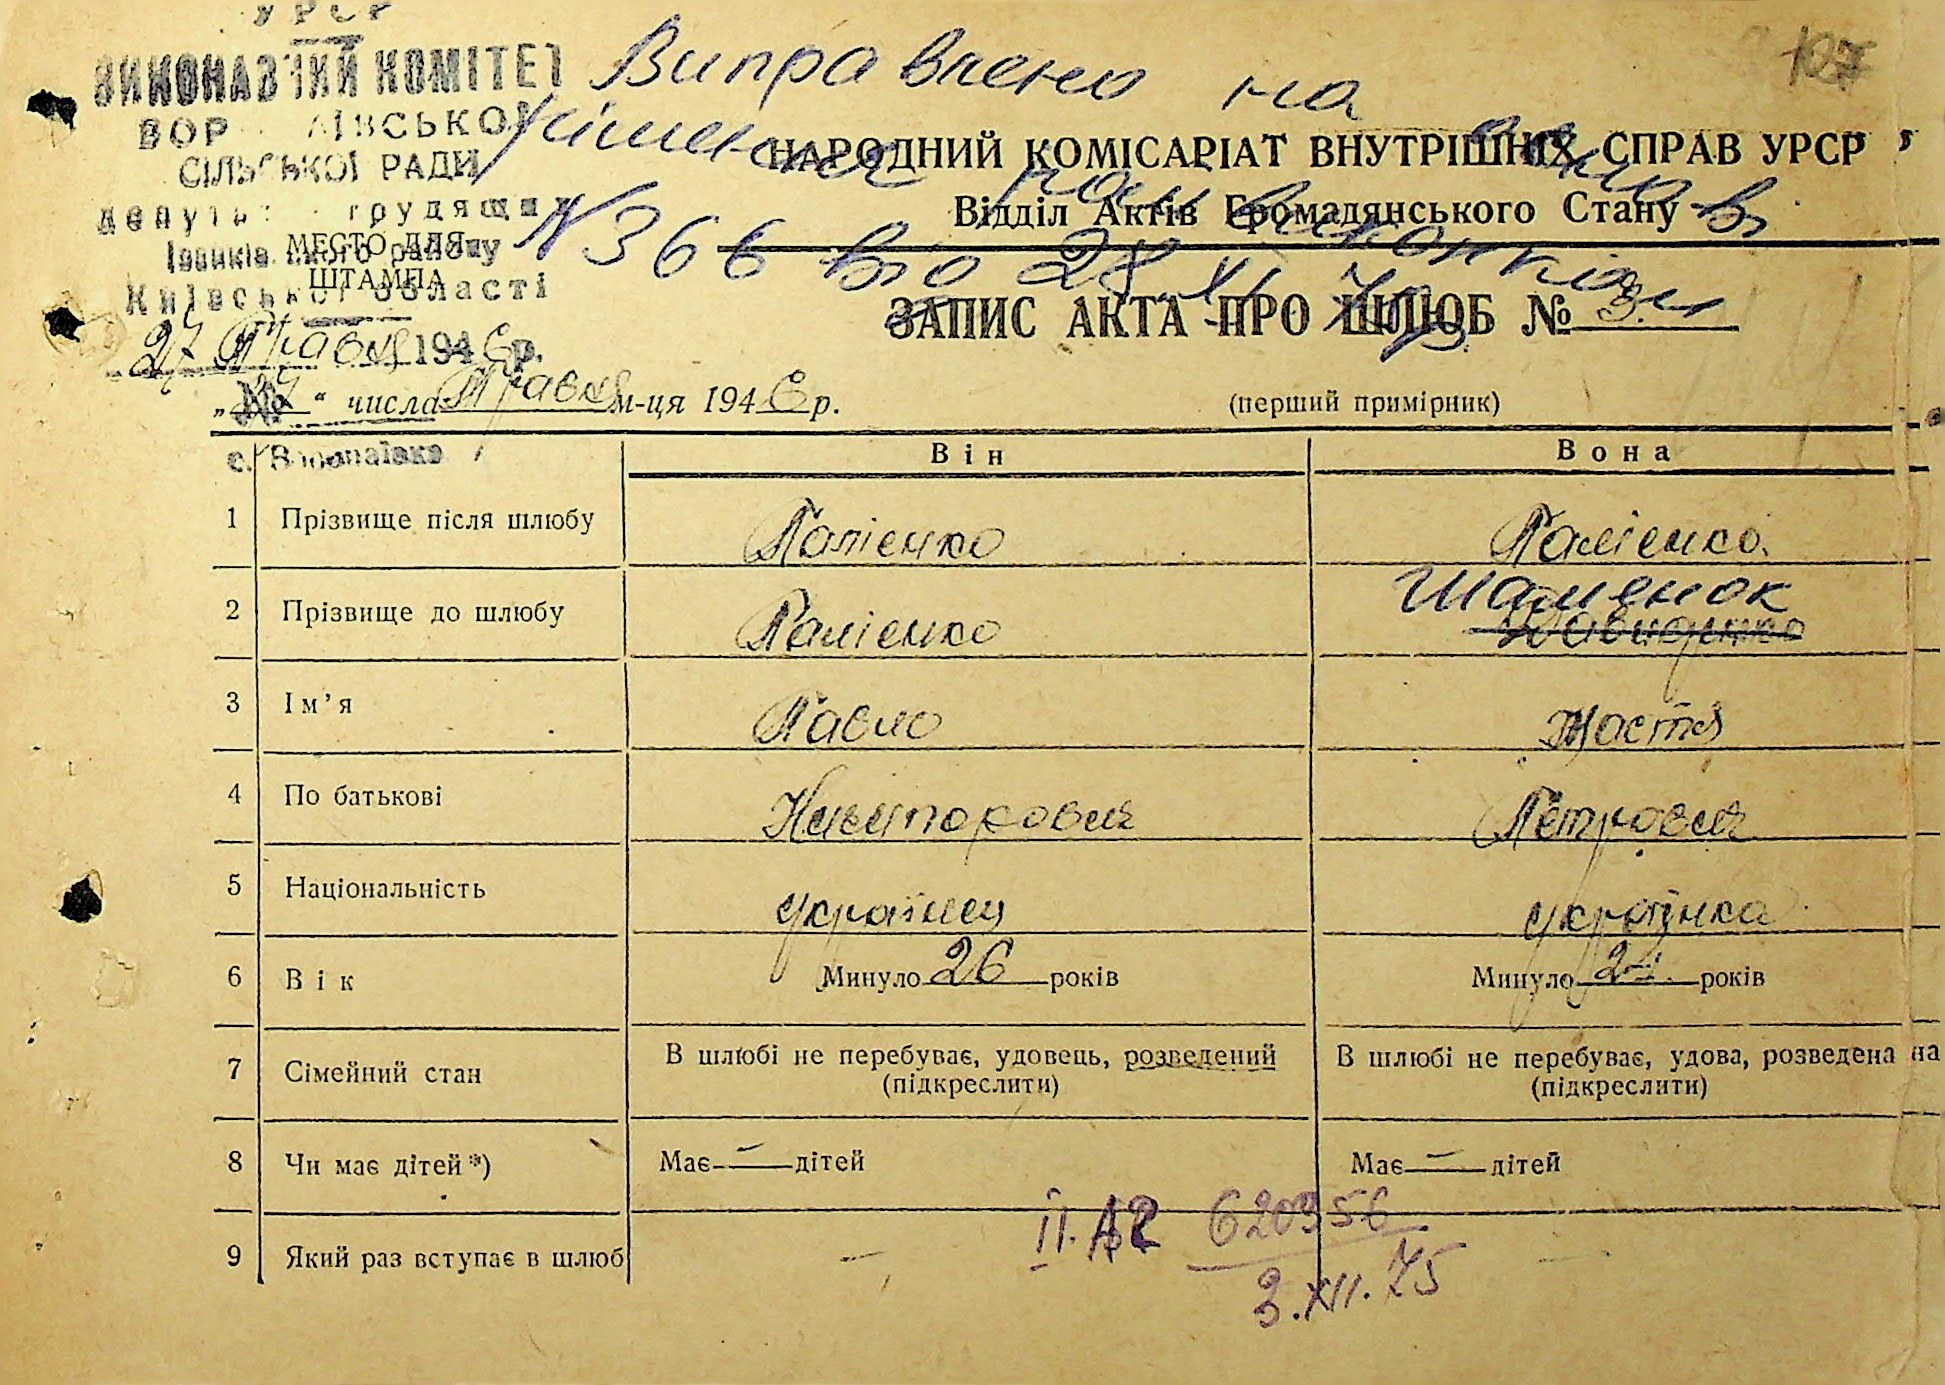 УРСР
ВИКОНАВЧИЙ КОМІТЕТ
СІЛЬСЬКОЇ РАДИ
депутатів трудящих
Іванківського району
Київської області
МЕСТО ДЛЯ
ШТАМПА
27 Травня 1946 р.
Виправлено на
рішення
№ 366 від 28.XI.75р
107
НАРОДНИЙ КОМІСАРІАТ ВНУТРІШНІХ СПРАВ УРСР
Відділ Актів Громадянського Стану
ЗАПИС АКТА ПРО ШЛЮБ № 3.
„27“ числа Травня м-ця 1946 р.
(перший примірник)
с.
Він Вона
1 Прізвище після шлюбу Палієнко Палієнко.
2 Прізвище до шлюбу Палієнко Шаменок
3 Ім’я Павло Настя
4 По батькові Никипорович Петрович
5 Національність українец українка
6 Вік Минуло 26 років Минуло років
7 Сімейний стан В шлюбі не перебуває, удовець, розведений (підкреслити) В шлюбі не перебуває, удова, розведена (підкреслити)
на
8 Чи має дітей *) Має — дітей Має — дітей
9 Який раз вступає в шлюб — —
620956
3.XII.75